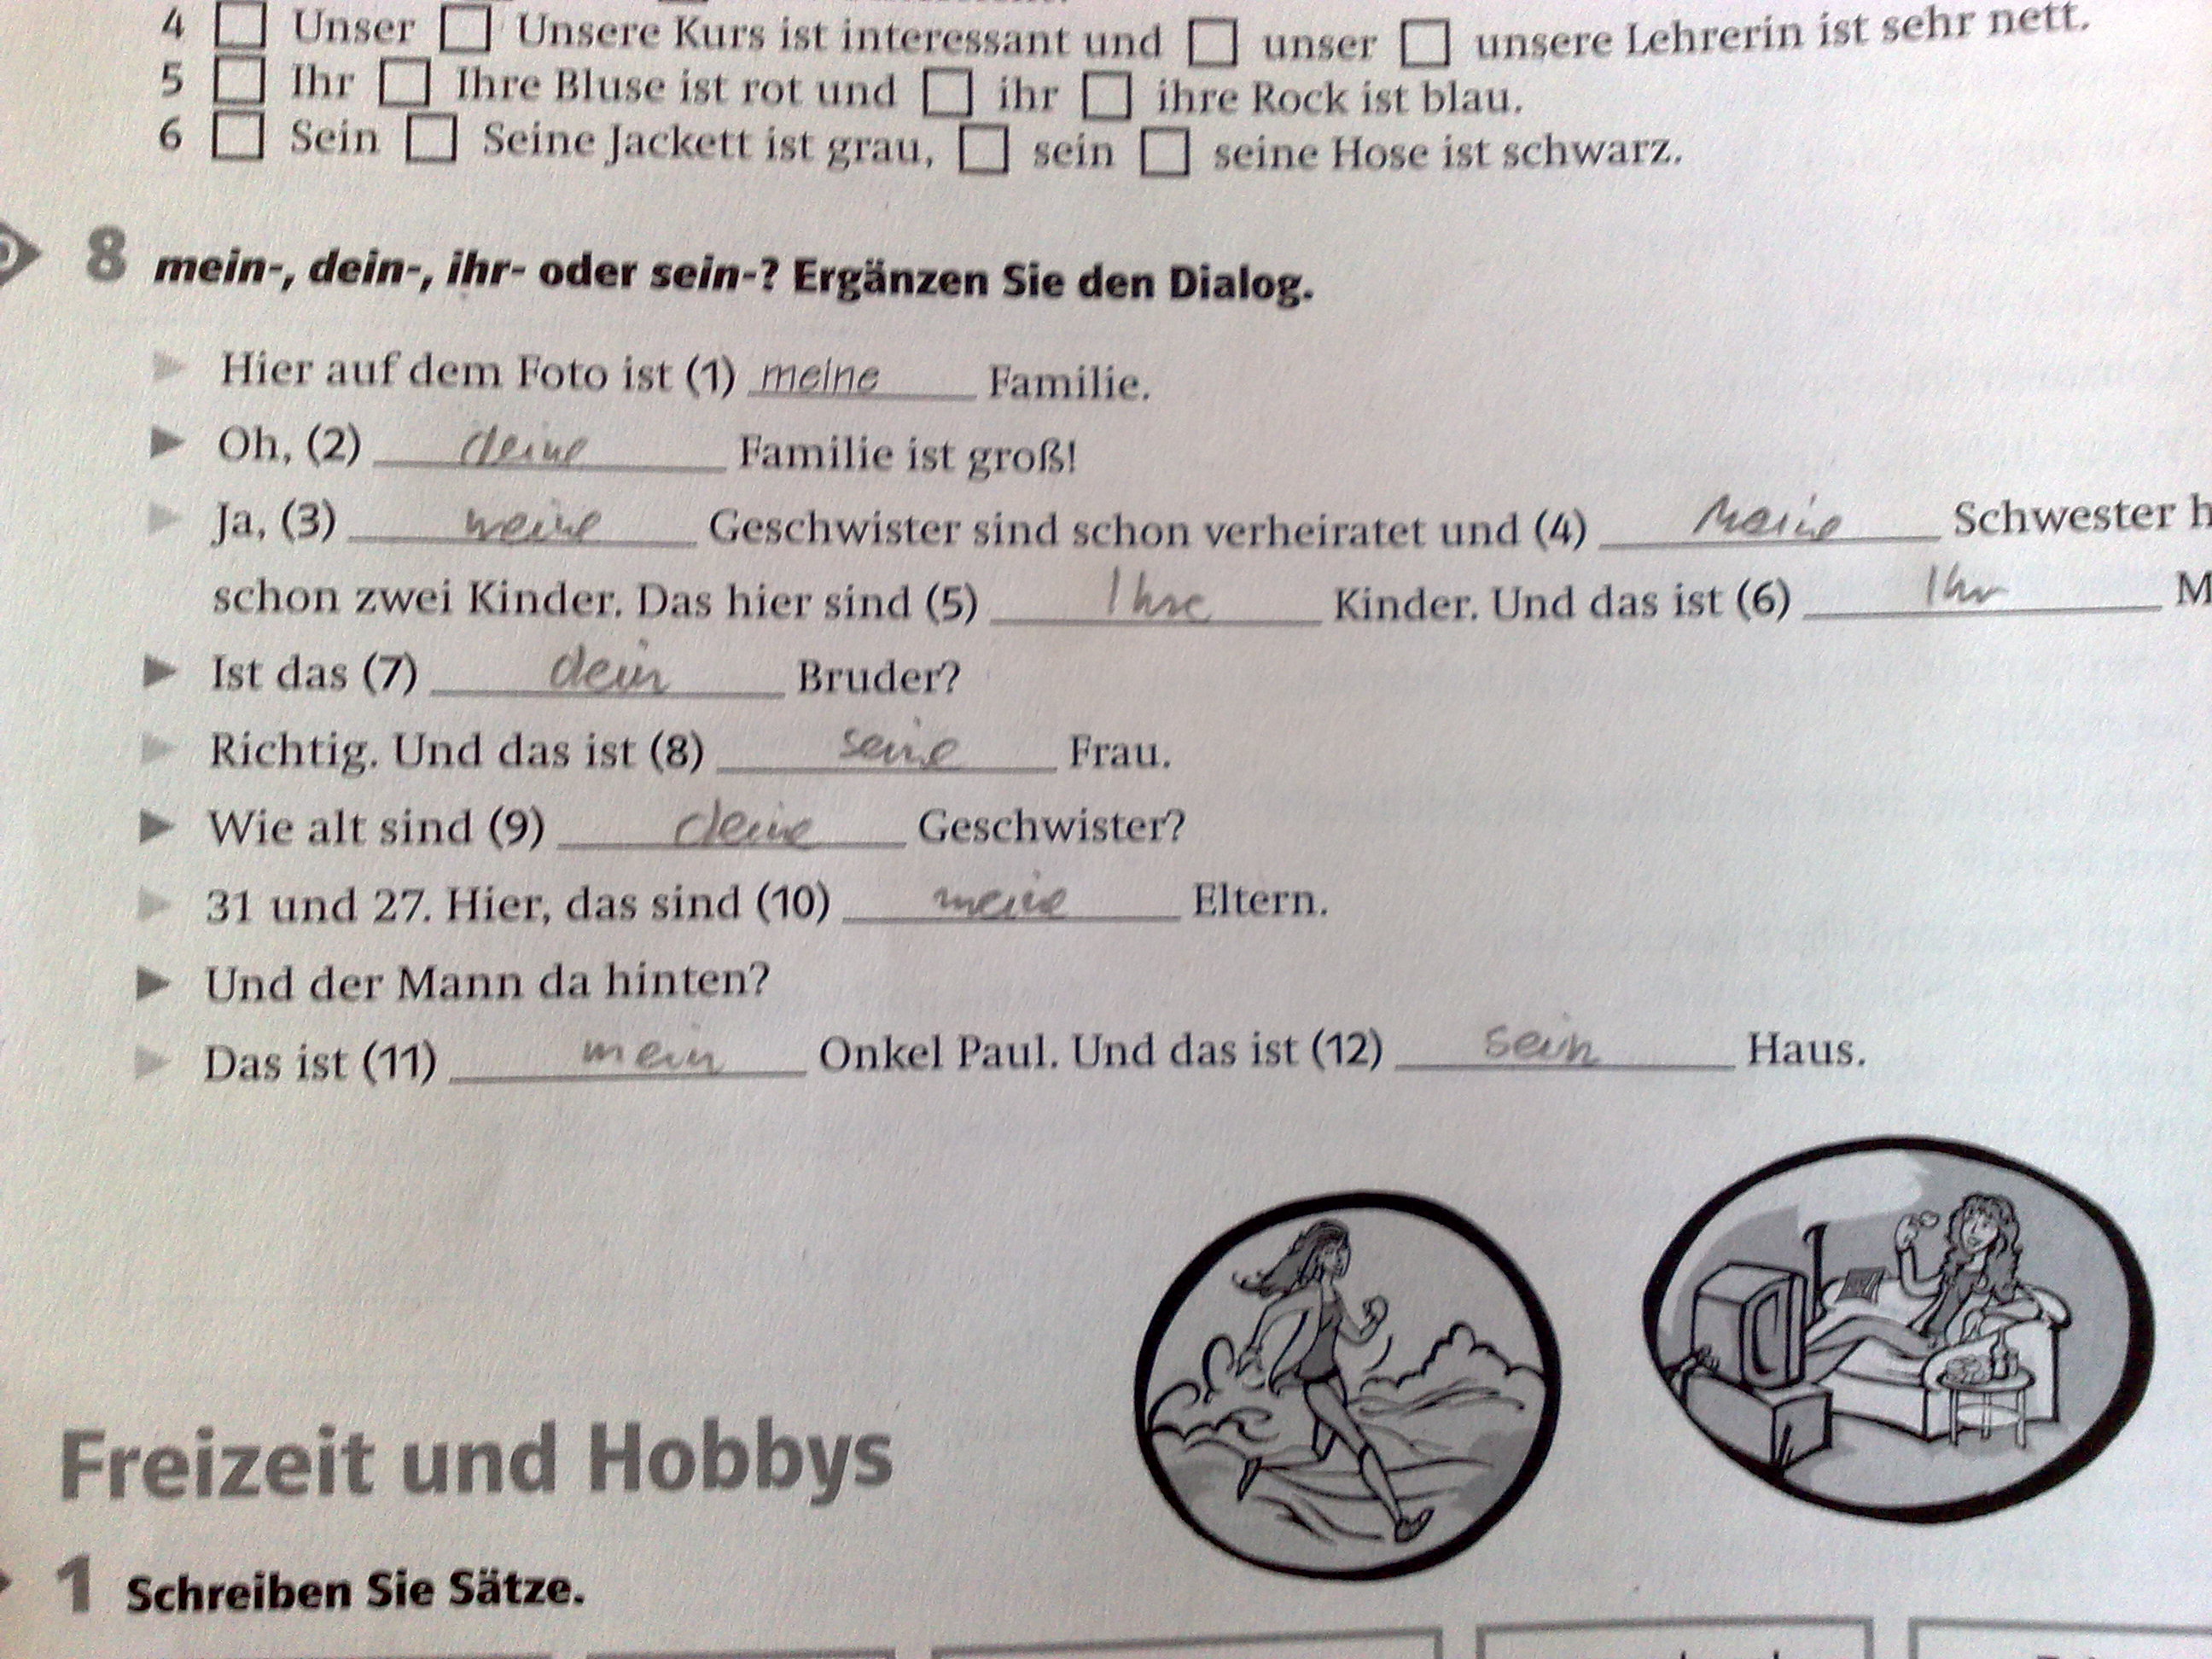 4 ☐ Unser ☐ Unsere Kurs ist interessant und ☐ unser ☐ unsere Lehrerin ist sehr nett.
5 ☐ Ihr ☐ Ihre Bluse ist rot und ☐ ihr ☐ ihre Rock ist blau.
6 ☐ Sein ☐ Seine Jackett ist grau, ☐ sein ☐ seine Hose ist schwarz.
8 mein-, dein-, ihr- oder sein-? Ergänzen Sie den Dialog.
Hier auf dem Foto ist (1) meine Familie.
Oh, (2) deine Familie ist groß!
Ja, (3) meine Geschwister sind schon verheiratet und (4) Meine Schwester h
schon zwei Kinder. Das hier sind (5) Ihre Kinder. Und das ist (6) Ihr M
Ist das (7) dein Bruder?
Richtig. Und das ist (8) seine Frau.
Wie alt sind (9) deine Geschwister?
31 und 27. Hier, das sind (10) meine Eltern.
Und der Mann da hinten?
Das ist (11) mein Onkel Paul. Und das ist (12) sein Haus.
Freizeit und Hobbys
1 Schreiben Sie Sätze.